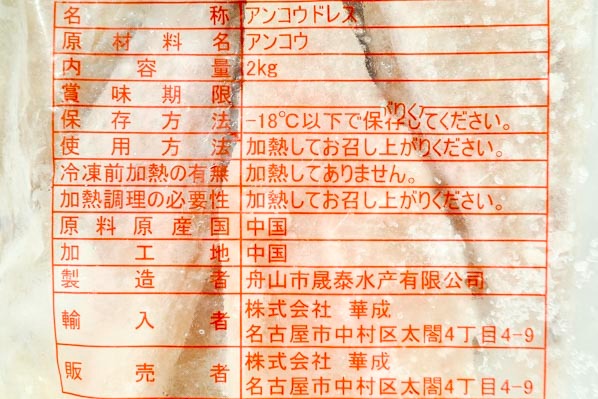 名称 アンコウドレス
原材料名 アンコウ
内容量 2kg
賞味期限
保存方法 -18℃以下で保存してください。
使用方法 加熱してお召し上がりください。
冷凍前加熱の有無 加熱してありません。
加熱調理の必要性 加熱してお召し上がりください。
原料原産国 中国
加工地 中国
製造者 舟山市晟泰水产有限公司
輸入者 株式会社 華成
名古屋市中村区太閤4丁目4-9
販売者 株式会社 華成
名古屋市中村区太閤4丁目4-9